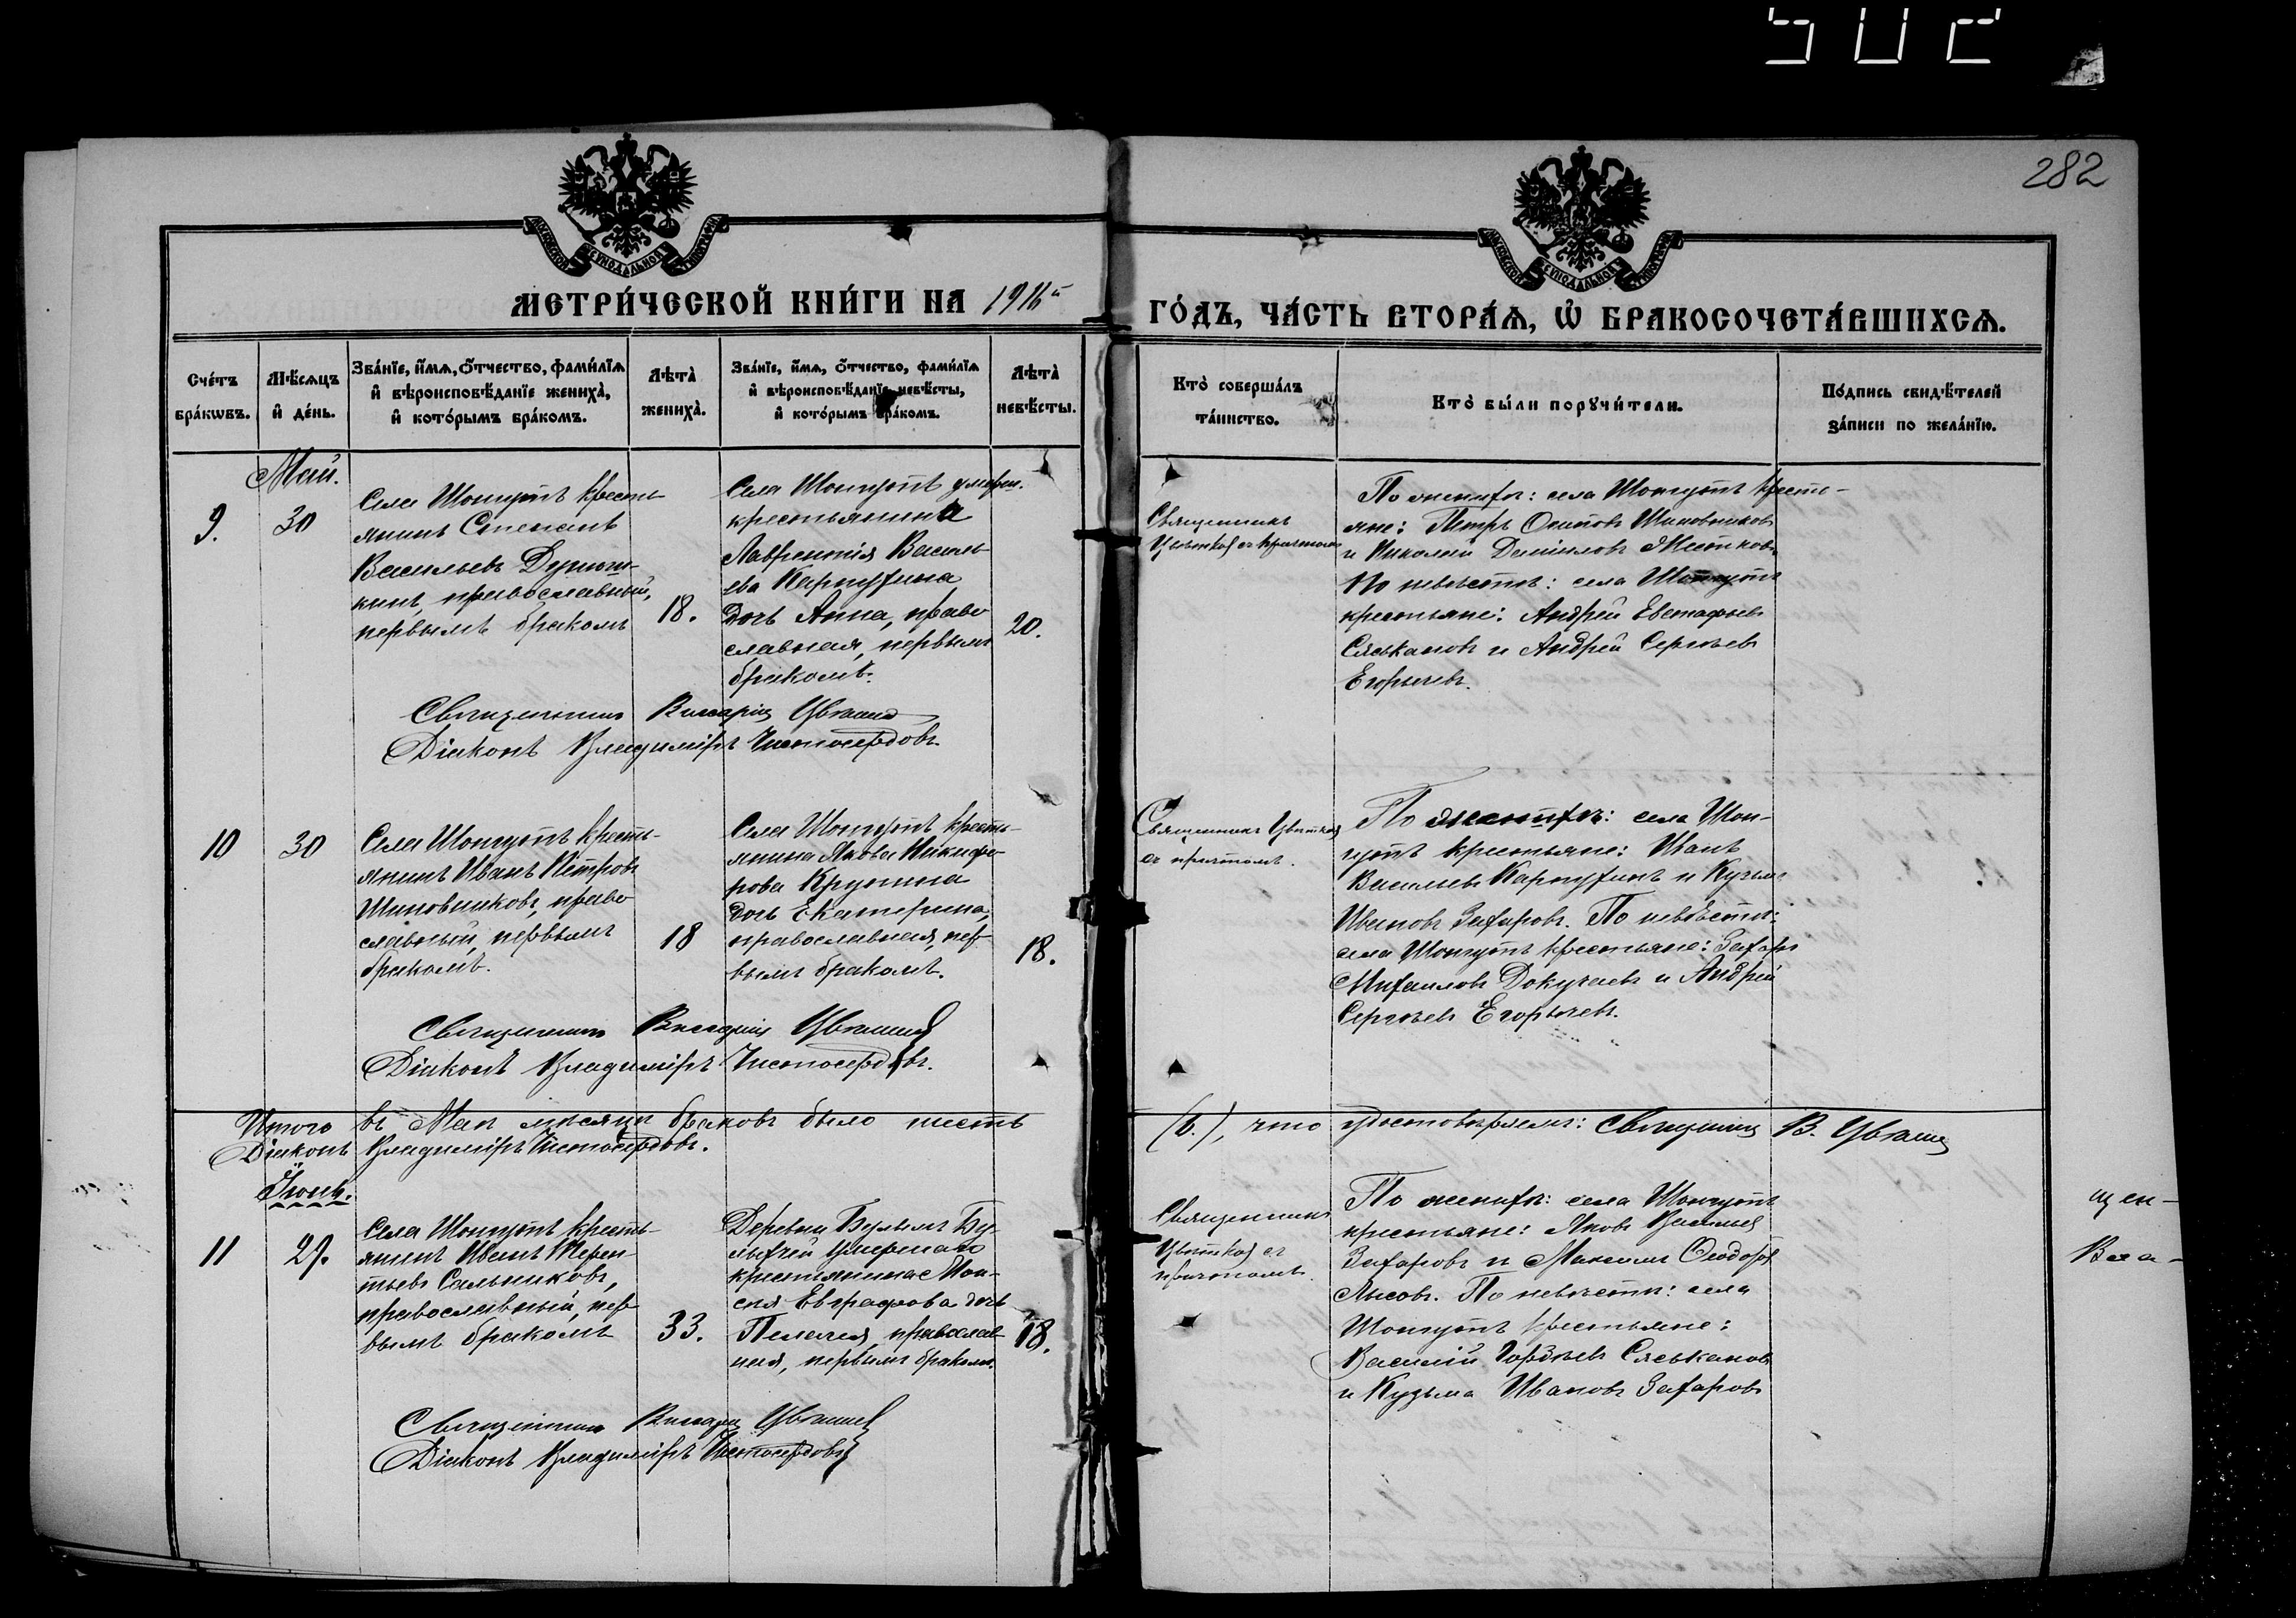 502
282
МОСКОВСКОЙ СΥНОДАЛЬНОЙ ТИПОГРАФІИ
МОСКОВСКОЙ СΥНОДАЛЬНОЙ ТИПОГРАФІИ
МЕТРИ́ЧЕСКОЙ КНИ́ГИ НА 1916й
ГО́ДЪ, ЧА́СТЬ ВТОРА́Ѧ, Ѡ҆ БРАКОСОЧЕТА́ВШИХСѦ.
Сче́тъ бра́кѡвъ.
Мѣ́сѧцъ и҆ де́нь.
Зва́нїе, и҆́мѧ, ѻ҆́тчество, фами́лїѧ и҆ вѣроисповѣ́данїе жениха̀, и҆ кото́рымъ бра́комъ.
Лѣта̀ жениха̀.
Зва́нїе, и҆́мѧ, ѻ҆́тчество, фами́лїѧ и҆ вѣроисповѣ́данїе невѣ́сты, и҆ кото́рымъ бра́комъ.
Лѣта̀ невѣ́сты.
Кто̀ соверша́лъ та́инство.
Кто̀ бы́ли порꙋчи́тели.
По́дпись свидѣ́телей за́писи по жела́нїю.
Май.
9.
30
Села Шонгутъ кресть-
янинъ Степанъ
Васильевъ
кинъ, православный,
первымъ бракомъ
18.
Села Шонгутъ умерш.
крестьянина
Лаврентія Василь-
ева Карпухина
дочь Анна, право
славная, первымъ
бракомъ.
20.
Священникъ
Цвѣтковъ съ причтомъ
По женихѣ: села Шонгутъ кресть-
яне: Петръ Осиповъ Шиповниковъ
и Николай Даниловъ
По невѣстѣ: села Шонгутъ
крестьяне: Андрей Евстафьевъ
Сяськановъ и Андрей Сергѣевъ
Егорычевъ.
Священникъ Виссаріонъ Цвѣтковъ
Діаконъ Владиміръ Чистосердовъ.
10
30
Села Шонгутъ кресть-
янинъ Иванъ Петровъ
Шиповниковъ, право
славный, первымъ
бракомъ.
18
Села Шонгутъ кресть-
янина Якова Никифо-
рова Крупина
дочь Екатерина,
православная, пер-
вымъ бракомъ.
18.
Священникъ Цвѣтковъ
съ причтомъ.
По женихѣ: села Шон-
гутъ крестьяне: Иванъ
Васильевъ Карпухинъ и Кузьма
Ивановъ Захаровъ. По невѣстѣ:
села Шонгутъ крестьяне: Захаръ
Михаиловъ Докучаевъ и Андрей
Сергѣевъ Егорычевъ.
Священникъ Виссаріонъ Цвѣтковъ
Діаконъ Владиміръ Чистосердовъ.
Итого въ Маѣ мѣсяцѣ браковъ было шесть (6.), что удостовѣряемъ: Священникъ В. Цвѣтковъ
Діаконъ Владиміръ Чистосердовъ.
Іюнь.
11
27.
Села Шонгутъ кресть-
янинъ Иванъ Терен-
тьевъ Сальниковъ,
православный, пер-
вымъ бракомъ
33.
Деревни Бу-
умершаго
крестьянина Мои-
сея Евграфова дочь
Пелагея, православ-
ная, первымъ бракомъ.
18.
Священникъ
Цвѣтковъ съ
причтомъ.
По женихѣ: села Шонгутъ
крестьяне: Яковъ Васильевъ
Захаровъ и Максимъ Ѳеодоровъ
Лысовъ. По невѣстѣ: села
Шонгутъ крестьяне:
Василій Гордѣевъ Сяськановъ
и Кузьма Ивановъ Захаровъ
щен-
Вла-
Священникъ Виссаріонъ Цвѣтковъ
Діаконъ Владиміръ Чистосердовъ